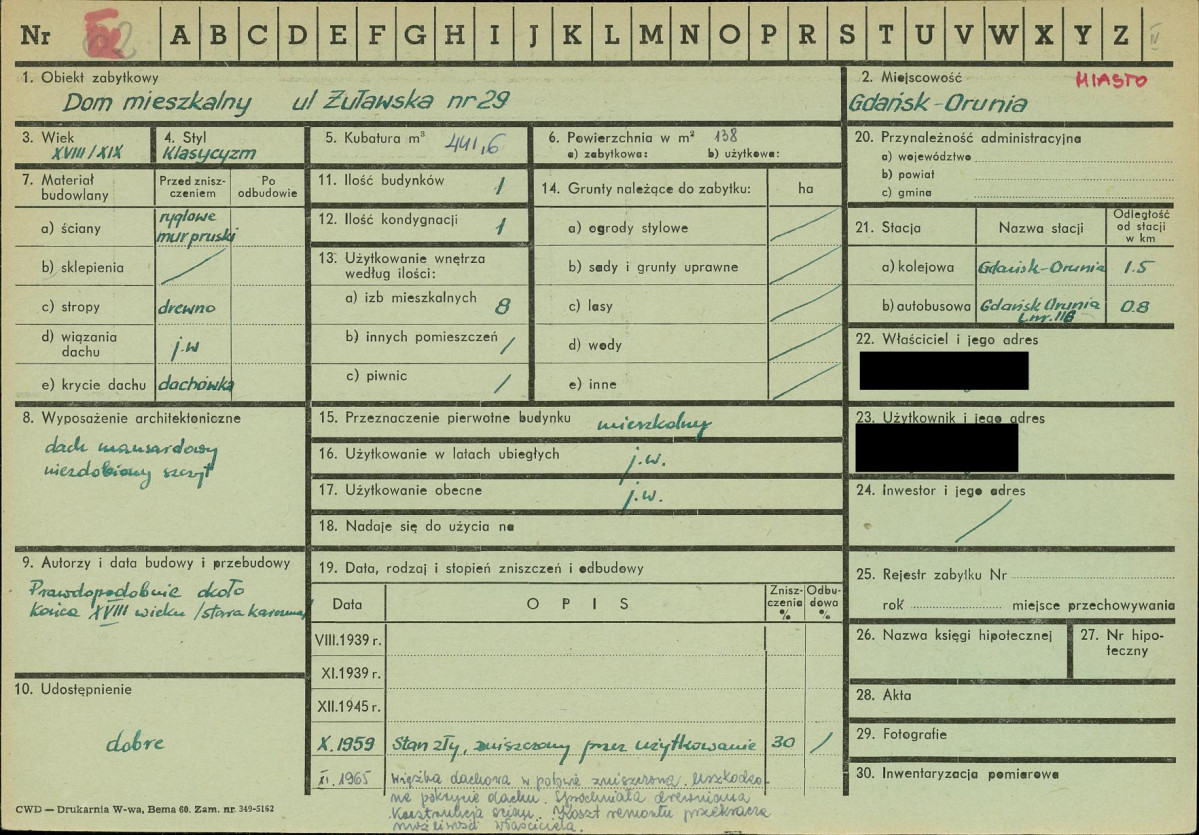 Nr A B C D E F G H I J K L M N O P R S T U V W X Y Z IV
1. Obiekt zabytkowy
Dom mieszkalny ul Żuławska nr 29
2. Miejscowość MIASTO
Gdańsk-Orunia
3. Wiek
XVIII/XIX
4. Styl
Klasycyzm
5. Kubatura m³ 441,6
6. Powierzchnia w m² 138
a) zabytkowa: b) użytkowa:
20. Przynależność administracyjna
a) województwo
b) powiat
c) gmina
7. Materiał budowlany
Przed znisz-
czeniem
Po
odbudowie
a) ściany ryglowe
mur pruski
b) sklepienia /
c) stropy drewno
d) wiązania
dachu j.w
e) krycie dachu dachówka
11. Ilość budynków 1
12. Ilość kondygnacji 1
13. Użytkowanie wnętrza
według ilości:
a) izb mieszkalnych 8
b) innych pomieszczeń /
c) piwnic /
14. Grunty należące do zabytku: ha
a) ogrody stylowe /
b) sady i grunty uprawne /
c) lasy /
d) wody /
e) inne /
21. Stacja Nazwa stacji Odległość
od stacji
w km
a) kolejowa Gdańsk-Orunia 1.5
b) autobusowa Gdańsk Orunia 0.8
L.nr. 118
22. Właściciel i jego adres
23. Użytkownik i jego adres
24. Inwestor i jego adres
/
8. Wyposażenie architektoniczne
dach mansardowy
niezdobiony szczyt
15. Przeznaczenie pierwotne budynku mieszkalny
16. Użytkowanie w latach ubiegłych j.w.
17. Użytkowanie obecne j.w.
18. Nadaje się do użycia na
9. Autorzy i data budowy i przebudowy
Prawdopodobnie około
końca XVIII wieku /stara karczma/
10. Udostępnienie
dobre
19. Data, rodzaj i stopień zniszczeń i odbudowy
Data OPIS Znisz-
czenia
% Odbu-
dowa
%
VIII.1939 r.
XI.1939 r.
XII.1945 r.
X.1959 Stan zły, zniszczony przez użytkowanie 30 /
XI.1965 Więźba dachowa w połowie zniszczona. Uszkodzo-
ne pokrycie dachu. Spróchniała drewniana
konstrukcja ścian. Koszt remontu przekracza
możliwości właściciela.
25. Rejestr zabytku Nr
rok miejsce przechowywania
26. Nazwa księgi hipotecznej
27. Nr hipo-
teczny
28. Akta
29. Fotografie
30. Inwentaryzacja pomiarowa
CWD — Drukarnia W-wa, Bema 60. Zam. nr. 349-5162